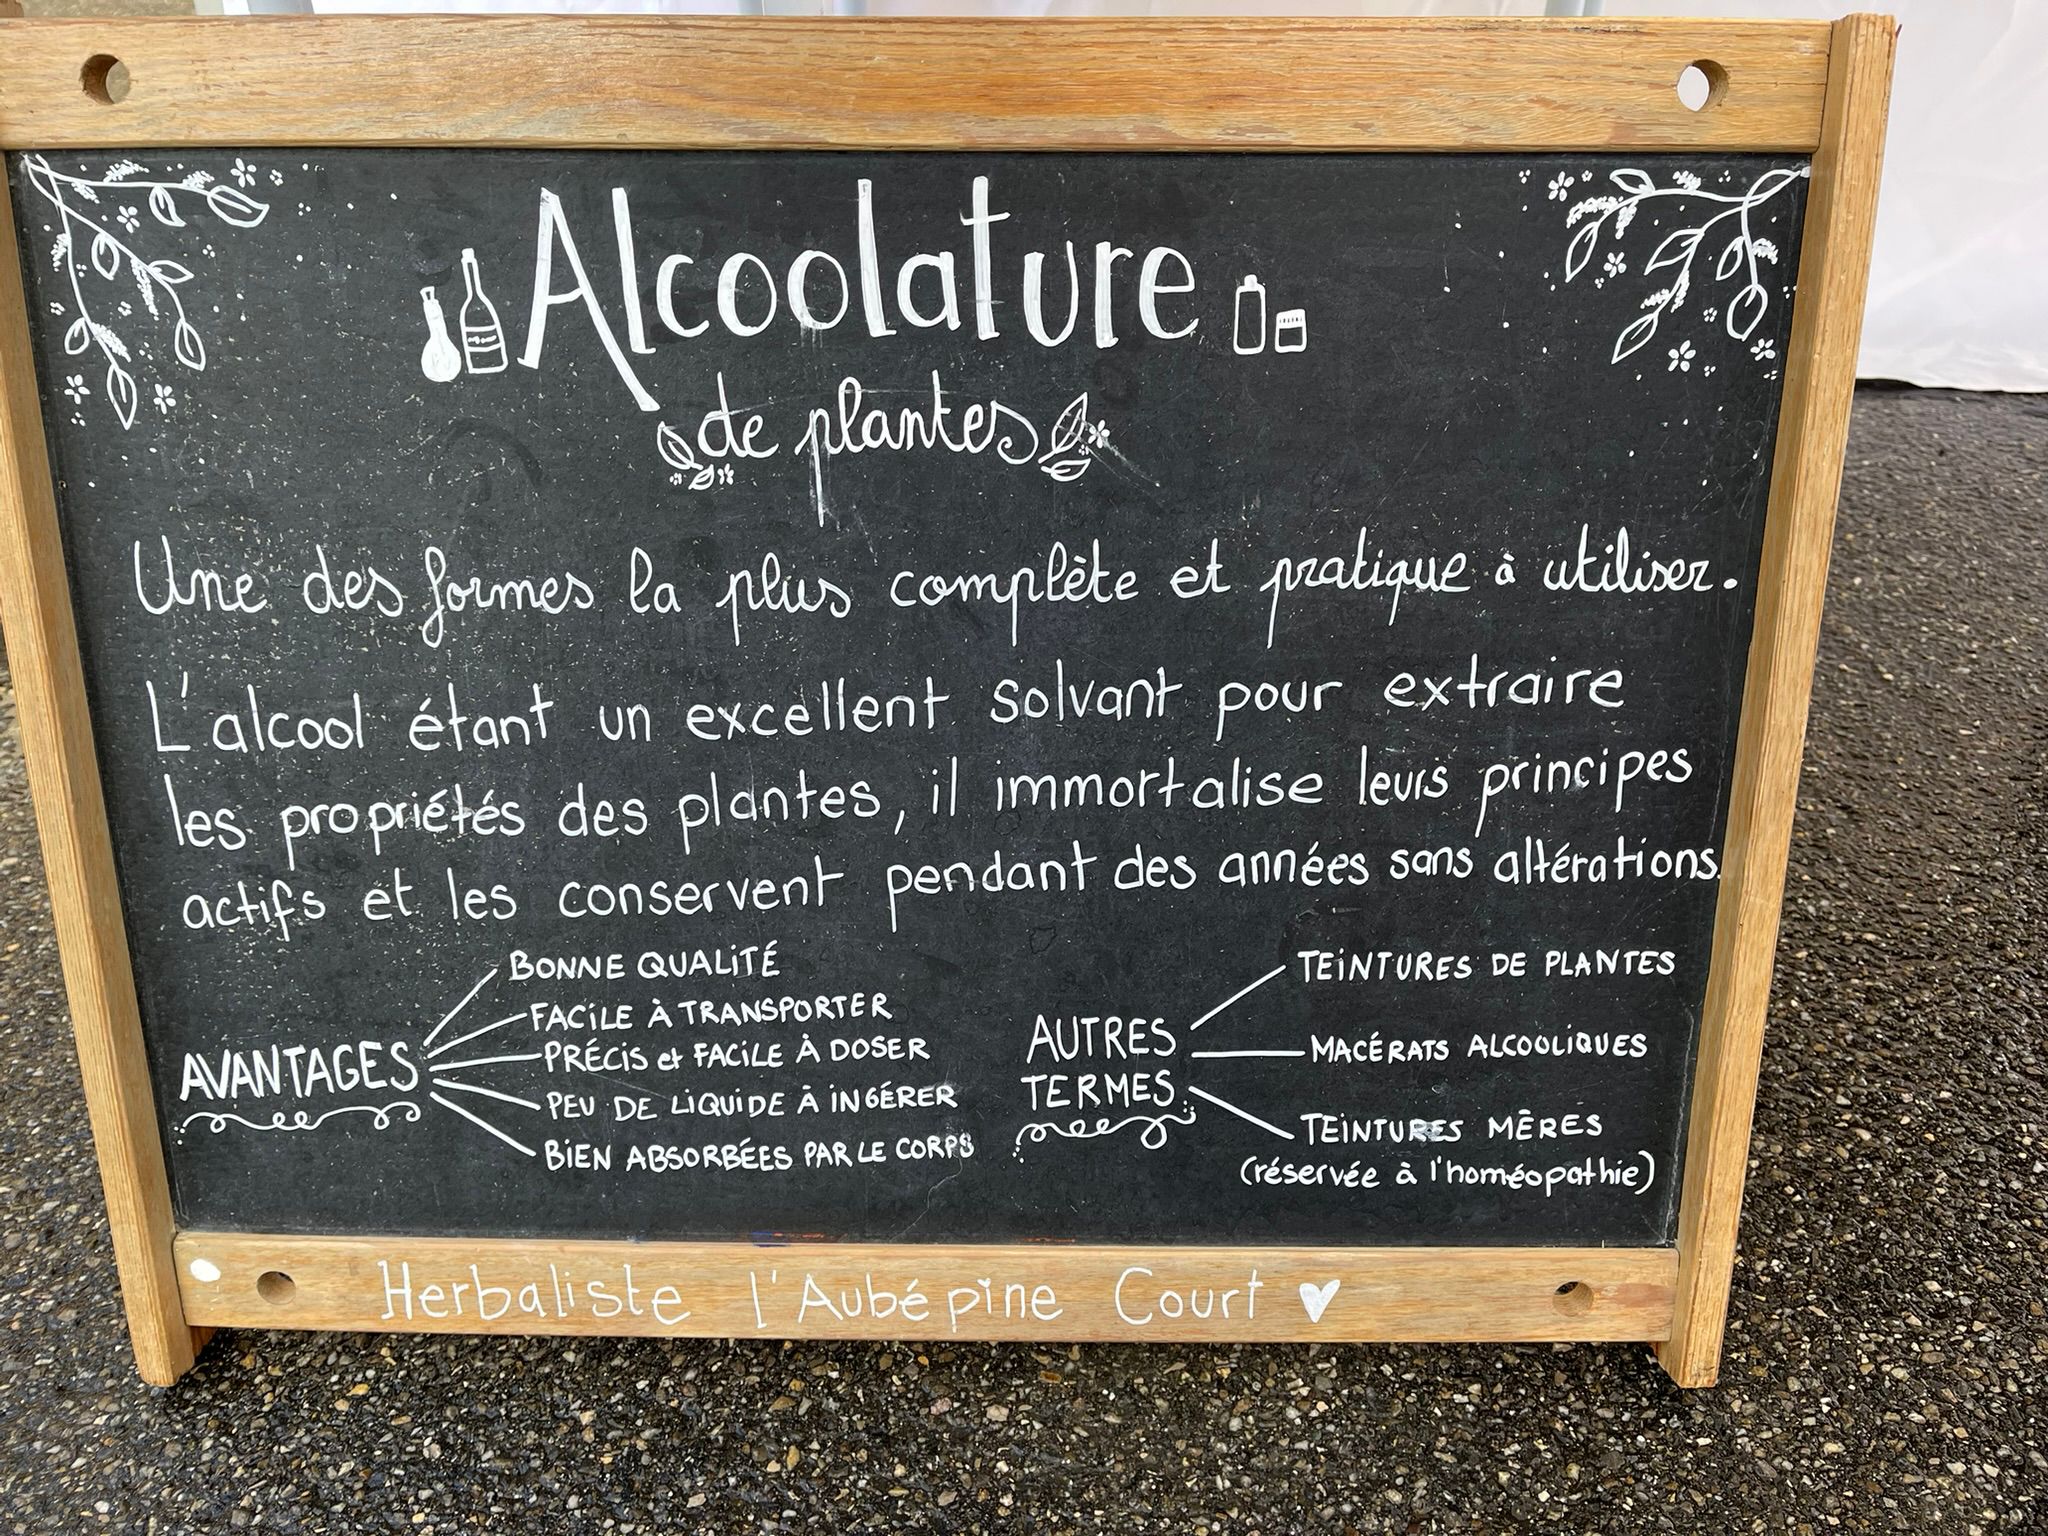 Alcoolature
de plantes
Une des formes la plus complète et pratique à utiliser.
L'alcool étant un excellent solvant pour extraire
les propriétés des plantes, il immortalise leurs principes
actifs et les conservent pendant des années sans altérations.
AVANTAGES
BONNE QUALITÉ
FACILE À TRANSPORTER
PRÉCIS et FACILE À DOSER
PEU DE LIQUIDE À INGÉRER
BIEN ABSORBÉES PAR LE CORPS
AUTRES
TERMES
TEINTURES DE PLANTES
MACÉRATS ALCOOLIQUES
TEINTURES MÈRES
(réservée à l'homéopathie)
Herbaliste l'Aubépine Court